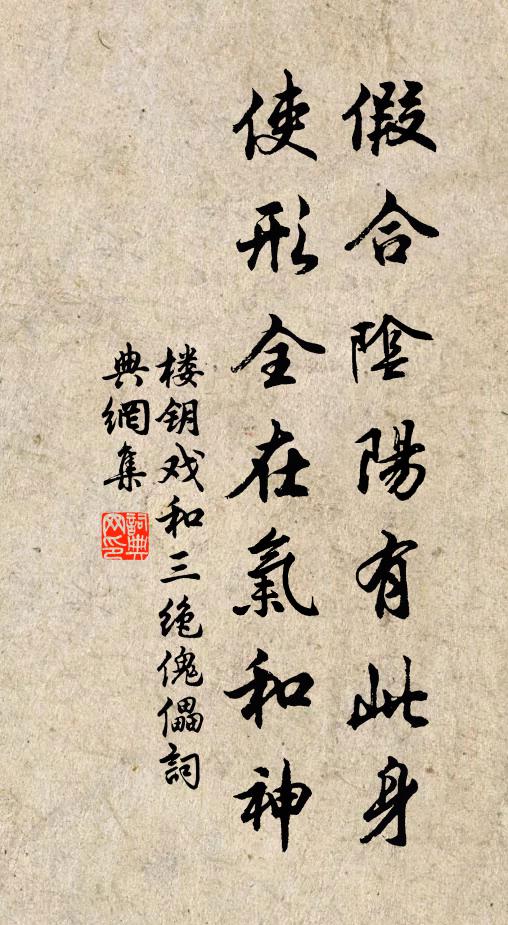 假合陰陽有此身
使形全在氣和神
楼钥戏和三绝傀儡詞
典網集
詞典
网印